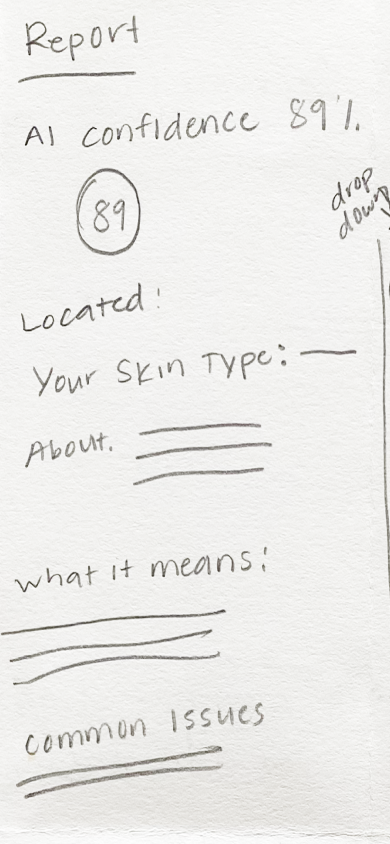 Report
AI confidence 89%
89
drop
down
Located:
Your Skin Type:
About.
what it means:
common Issues